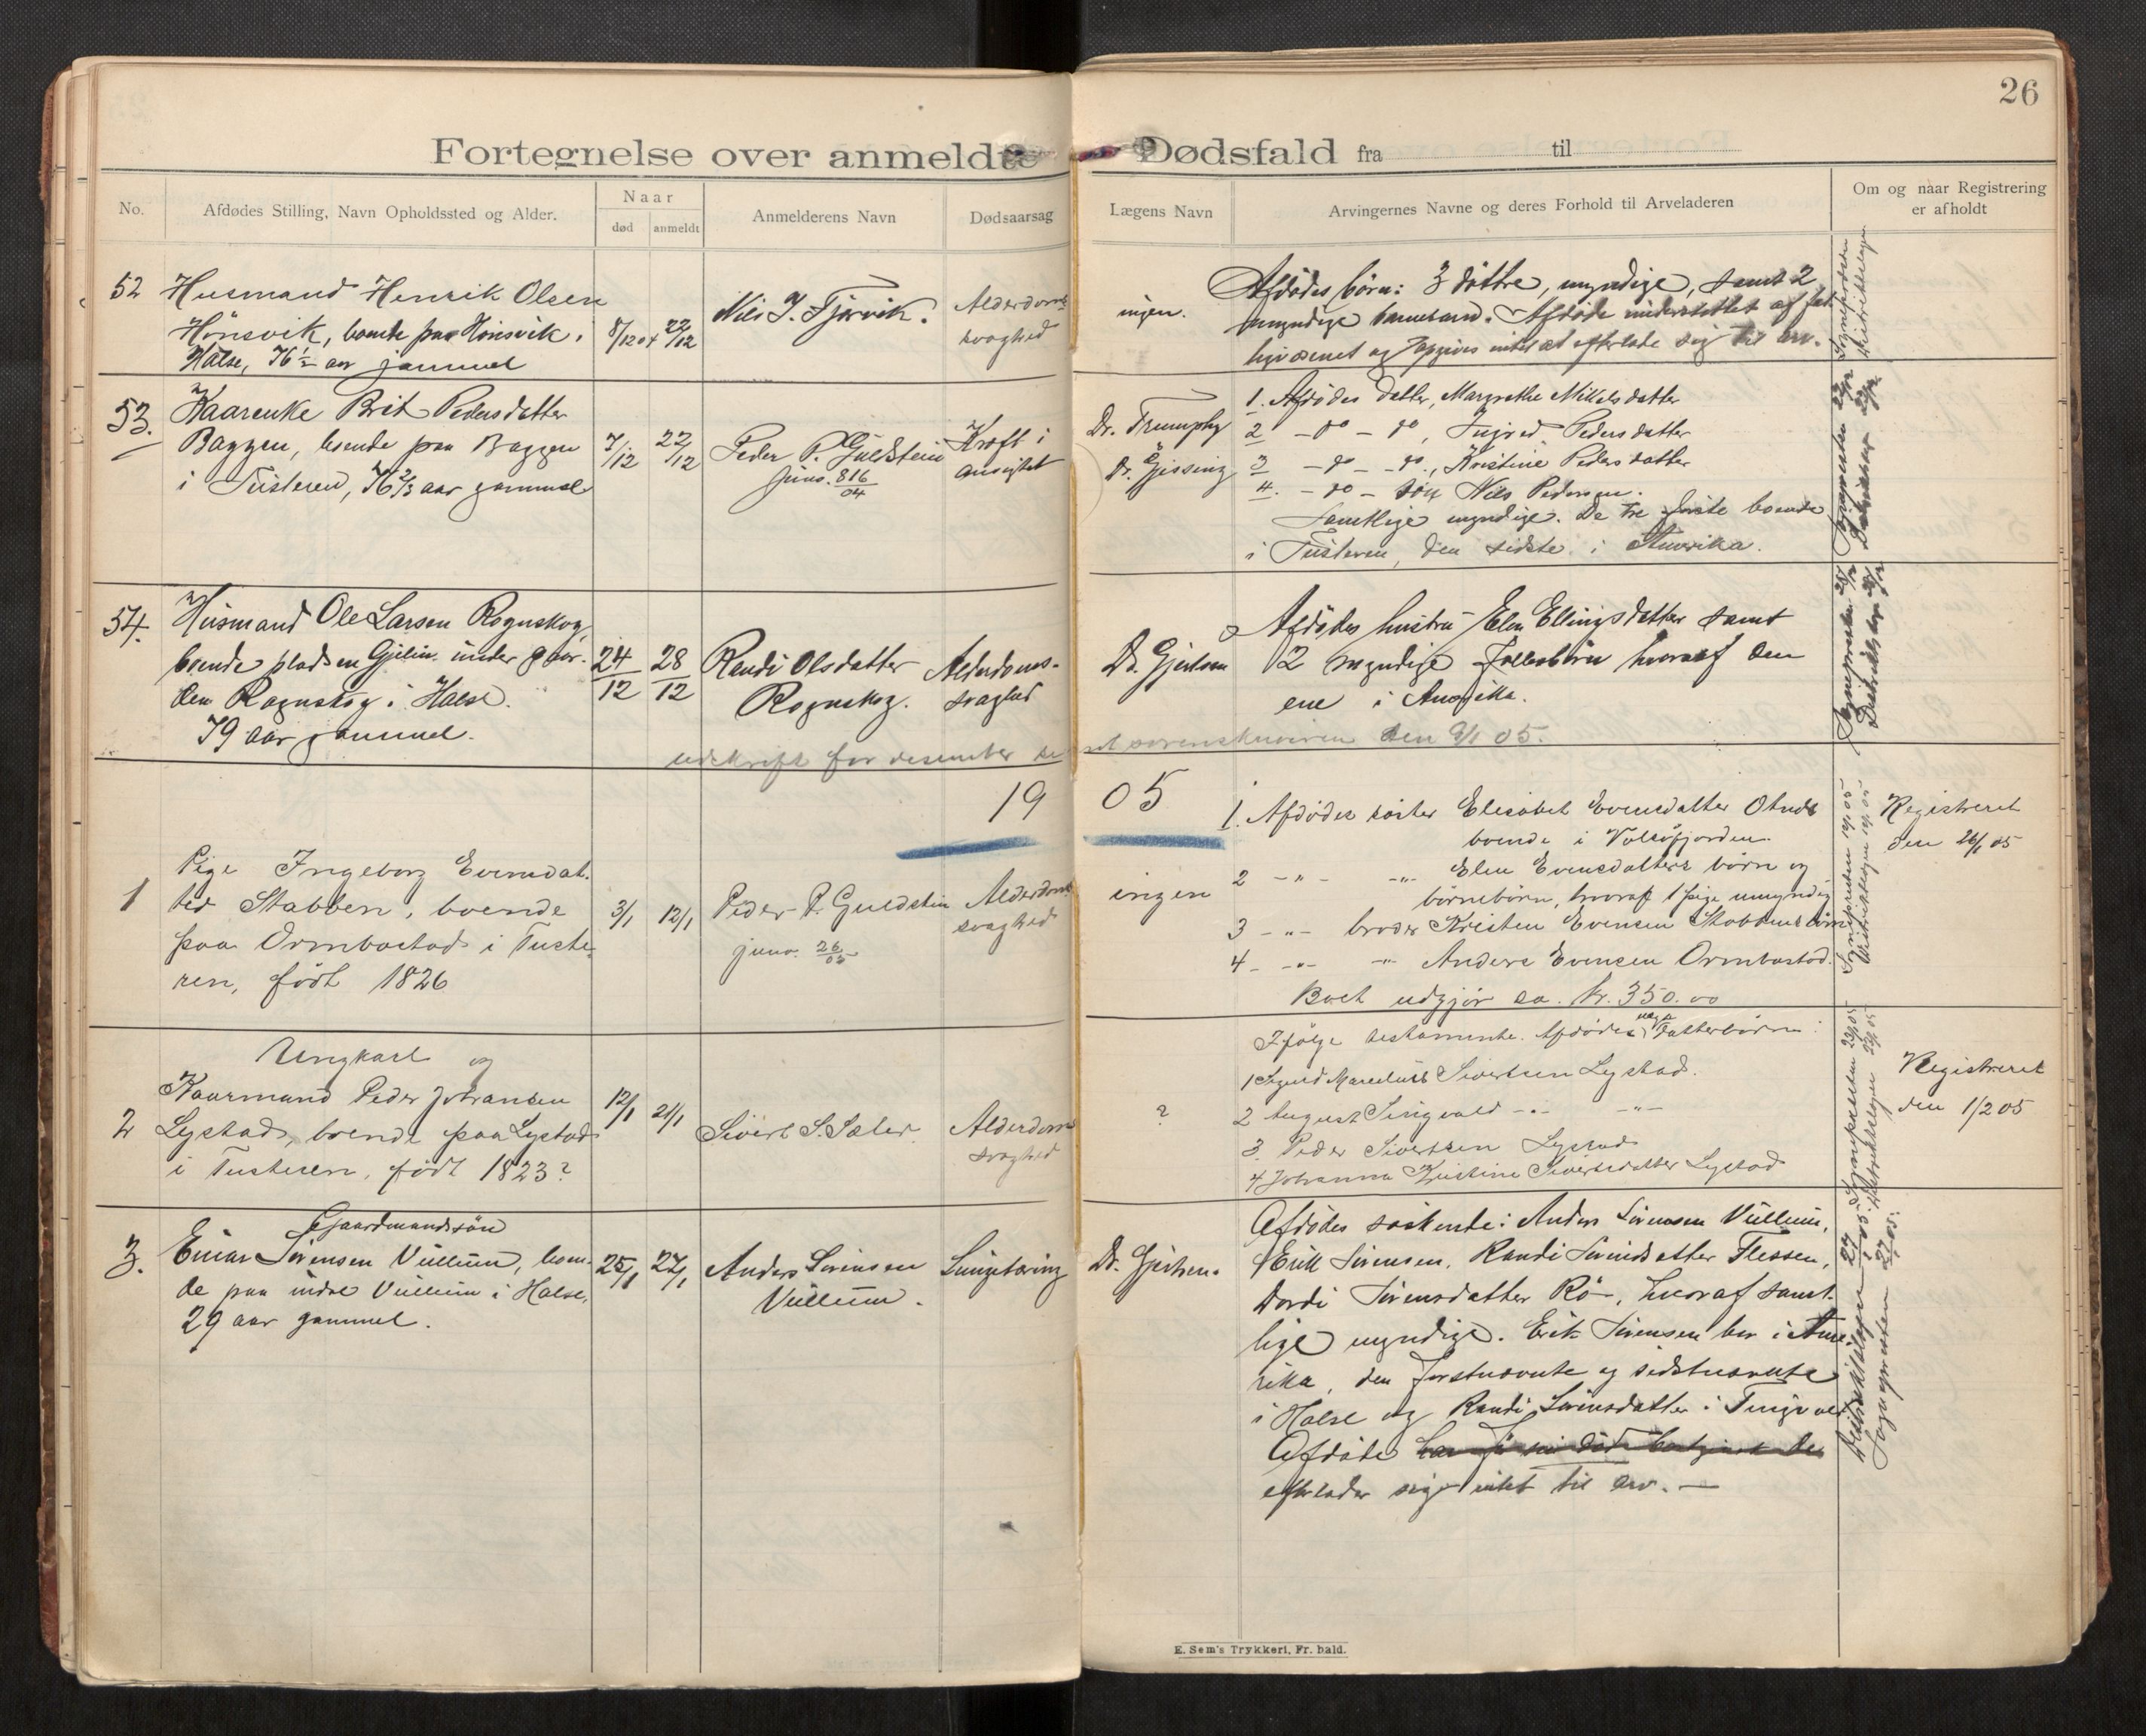 26
Fortegnelse over anmeldte Dødsfald fra til
No.
Afdødes Stilling, Navn Opholdssted og Alder.
Naar
død
anmeldt
Anmelderens Navn
Dødsaarsag
Lægens Navn
Arvingernes Navne og deres Forhold til Arveladeren
Om og naar Registrering
er afholdt
52
Husmand Henrik Olsen
Hönsvik, boende paa Hönsvik i
Halse, 76½ aar gammel
8/12 04
22/12
Nils J. Fjörvik.
Alderdoms
svaghed
ingen.
Afdödes börn: 3 döttre, myndige, samt 2
umyndige barnebarn. Afdöde understöttet af fat
tigvæsenet og opgives intet at efterlade sig til arv.
Sognepresten 22/12
Distriktslægen 22/12
53.
Kaarenke Brit Pedersdatter
Baggen, boende paa Baggen
i Tusteren, 76 2/3 aar gammel
7/12
22/12
Peder P. Guldstein
juns. 816/04
Kræft i
ansigtet
Dr. Trumphy
Dr. Gjessing
1. Afdödes datter, Margrethe Mikkelsdatter
2 - do - do, Ingred Pedersdatter
3 - do - do, Kristine Pedersdatter
4. - do - sön Nils Pedersen.
Samtlige myndige. De tre første boende
i Tusteren, den sidste i Amerika.
54.
Husmand Ole Larsen Rognskog,
boende pladsen Gjelin under gaar-
den Rognskog i Halse.
79 aar gammel.
24/12
28/12
Randi Olsdatter
Rognskog.
Alderdoms-
svaghed
Dr. Gjertsen
Afdödes hustru Elen Ellingsdatter samt
2 myndige fællesbörn hvoraf den
ene i Amerika.
Sognepresten 28/12
Distriktslægen 28/12
udskrift for desember sendt sorenskriveren den 9/1 05.
19 05
1
Pige Ingeborg Evensdat-
ter Stabben, boende
paa Ormbostad i Tuste-
ren, födt 1826
3/1
12/1
Peder P. Guldstein
juns. 26/05
Alderdoms
svaghed
ingen
1. Afdödes söster Elisabet Evensdatter Otnes
boende i Valsöfjorden
2 - " - - " - Elen Evensdatters börn og
börnebörn, hvoraf 1 pige umyndig
3 - " - broder Kristen Evensen Stabbens börn
4 - " - - " - Anders Evensen Ormbostad.
Boet udgjör ca. kr. 350.00
Sognepresten 14/1 05
Distriktslægen 14/1 05
Registreret
den 26/1 05
2
Ungkarl og
Kaarmand Peder Johansen
Lystad, boende paa Lystad
i Tusteren, födt 1823?
12/1
21/1
Sivert S. Sæter
Alderdoms
svaghed
?
Ifölge testamente. Afdödes Datterbörn:
1 Sigurd Marcelius Sivertsen Lystad.
2 August Singvald - " - - " -
3. Peder Sivertsen Lystad
4 Johanna Kristine Sivertsdatter Lystad
Sognepresten 23/1 05
Distriktslægen 23/1 05
Registreret
den 1/2 05
3.
Gaardmandssön
Einar Sörensen Vullum, boen-
de paa indre Vullum i Halse,
29 aar gammel.
25/1
27/1
Anders Sörensen
Vullum.
Lungetæring
Dr. Gjertsen.
Afdödes söskende: Anders Sörensen Vullum,
Erik Sörensen, Randi Sörensdatter Flessen,
Dordi Sörensdatter Rö, hvoraf samt-
lige myndige. Erik Sörensen bor i Ame-
rika, den førstnævnte og sidstnævnte
i Halse og Randi Sörensdatter i Tingvol.
Afdöde har för sin död bortgivet de
efterlader sig intet til arv. —
Distriktslægen 27/1 05.
Sognepresten 27/1 05.
E. Sem's Trykkeri, Fr. hald.